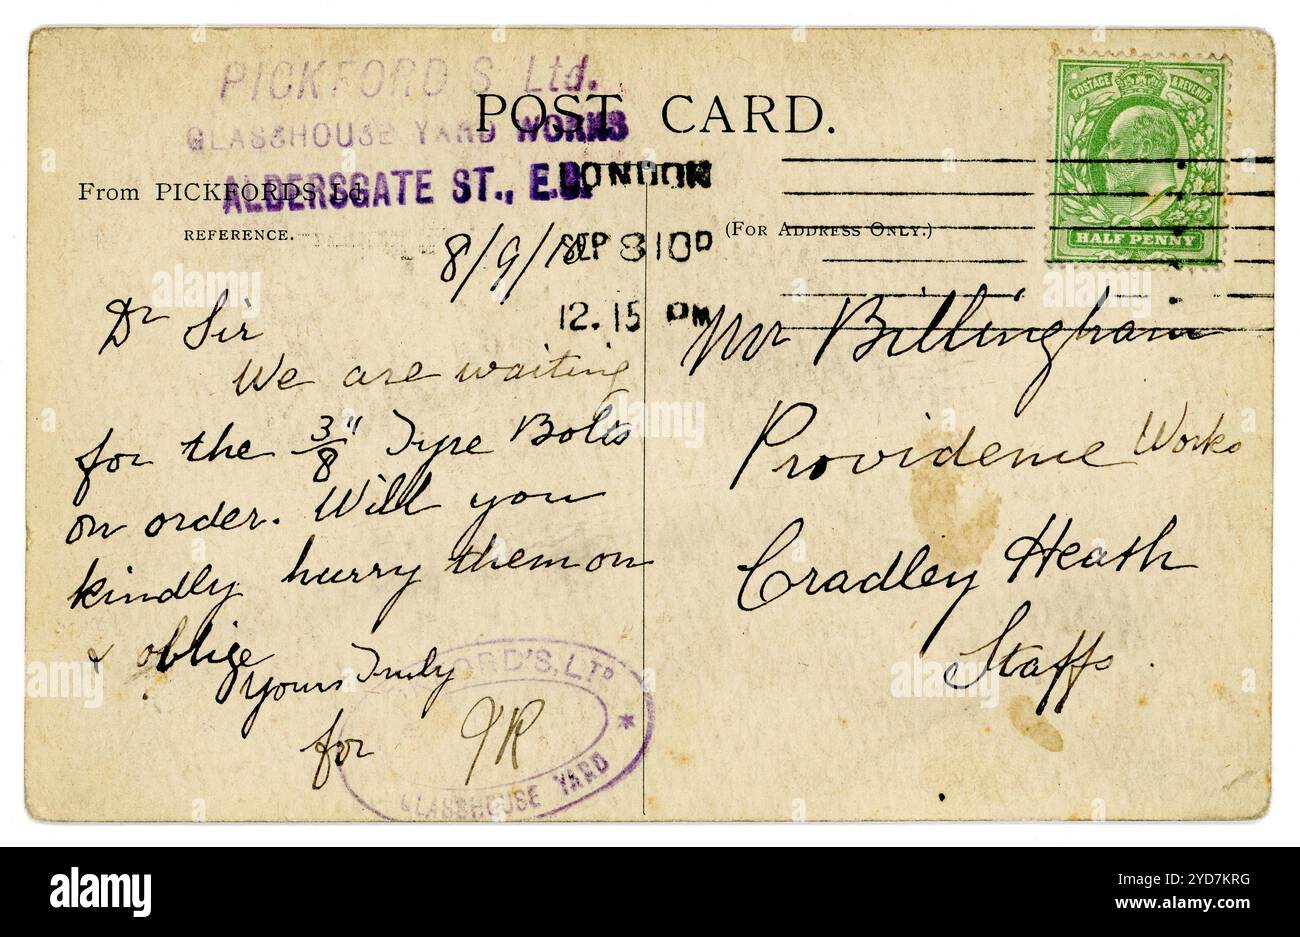 PICKFORD'S Ltd.
GLASSHOUSE YARD WORKS
ALDERSGATE ST., E.C.
POST CARD.
From PICKFORDS Ltd.
REFERENCE.
(FOR ADDRESS ONLY.)
LONDON
SEP 8 10
12.15 PM
POSTAGE & REVENUE
HALF PENNY
8/9/10
Dr Sir
We are waiting
for the 3/8" Tyre Bolts
on order. Will you
kindly hurry them on
& oblige
Yours Truly
for
PICKFORD'S, LTD
GLASSHOUSE YARD
Mr Billingham
Providence Works
Cradley Heath
Staffs.
alamy
Image ID: 2YD7KRG
www.alamy.com